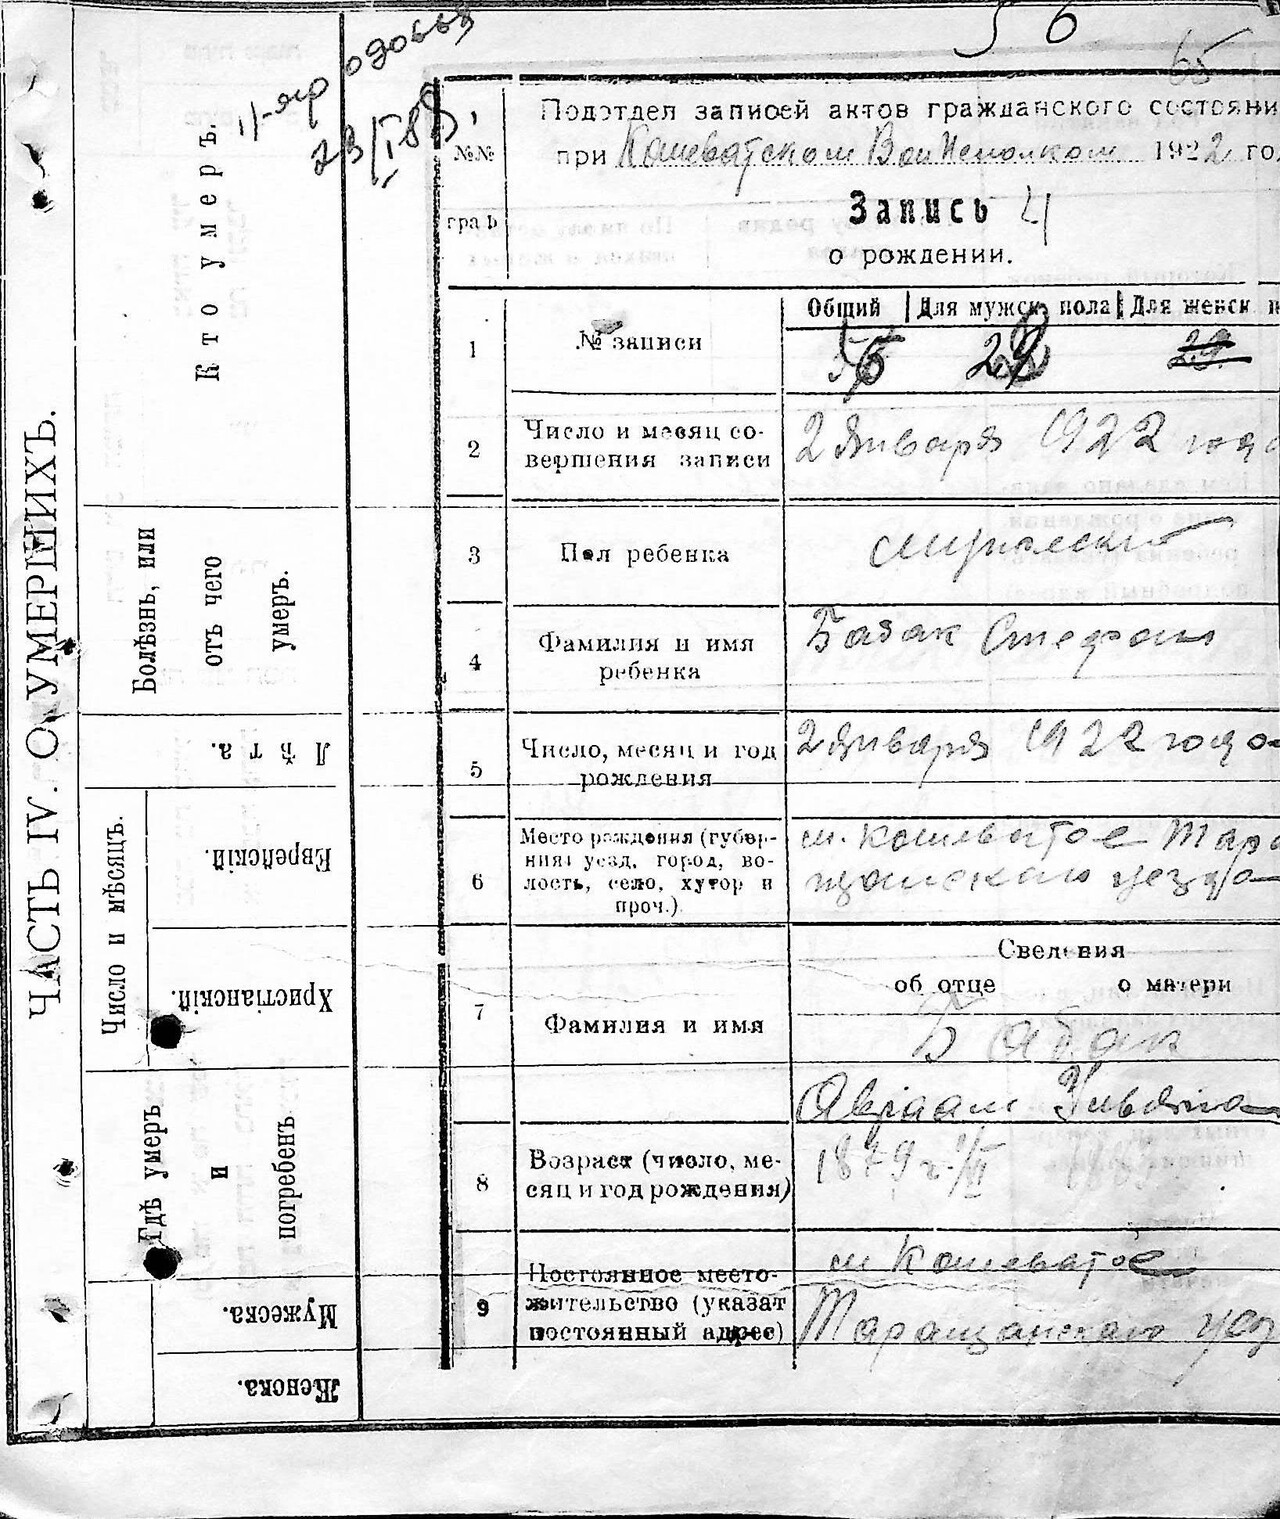 56
65
II-яр
23/I 88
ЧАСТЬ IV. О УМЕРШИХЪ.
Кто умеръ.
Болѣзнь, или
отъ чего
умеръ.
Лѣта.
Число и мѣсяцъ.
Еврейскій.
Христіанскій.
Гдѣ умеръ
и
погребенъ
Мужеска.
Женска.
№№
граф
Подотдел записей актов гражданского состояни
при Кошеватском ВолИсполком 1922 го
Запись 4
о рождении.
Общий Для мужск. пола Для женск п
1 № записи 56 29 29
2 Число и месяц со- 2 Января 1922 года
вершения записи
3 Пол ребенка мужеский
4 Фамилия и имя Бабак Стефан
ребенка
5 Число, месяц и год 2 Января 1922 года
рождения
Место рождения (губер- м. Кошеватое Тара
ния, уезд, город, во-
6 лость, село, хутор и щанского уезда
проч.)
Сведения
об отце о матери
7 Фамилия и имя Бабак
Авраам
8 Возраст (число, ме- 1879 г.
сяц и год рождения)
м Кошеватое
Постоянное место-
9 жительство (указат Таращанского уез
постоянный адрес)